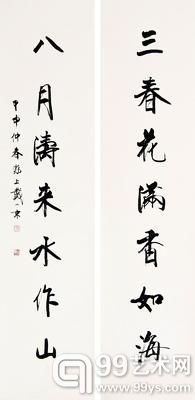 三春花满香如海
八月涛来水作山
甲申仲春
99艺术网
www.99ys.com